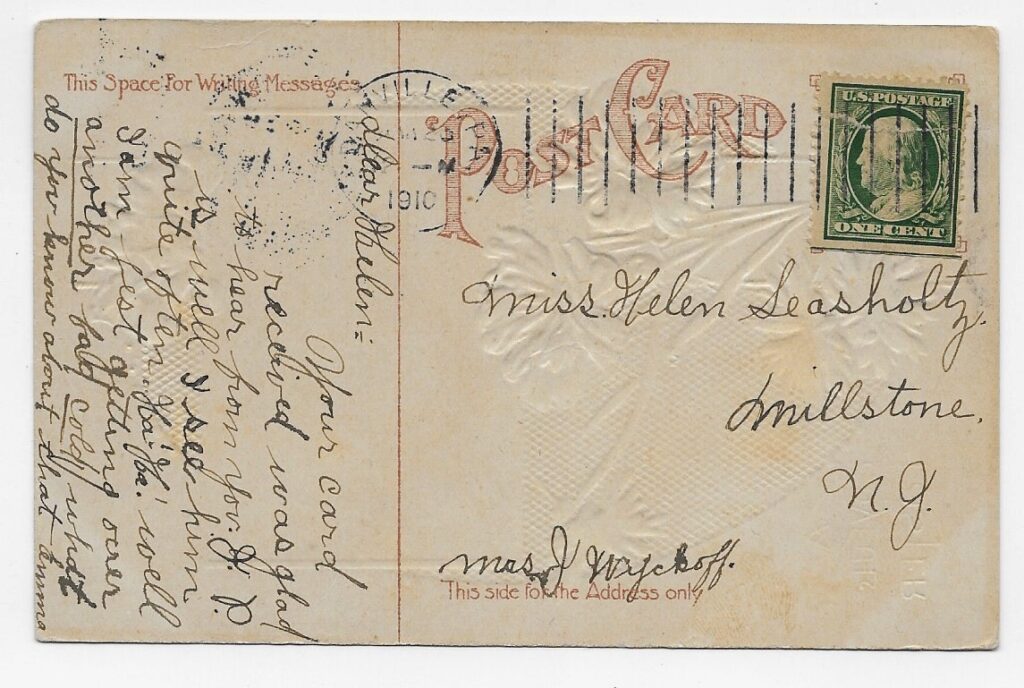 This Space For Writing Messages
POST CARD
VILLE
1910
U.S. POSTAGE
ONE CENT
Dear Helen:=
Your card
received was glad
to hear from you. J. P.
is well I see him
quite often. Ha! Ha! well
I am just getting over
another bad cold, what
do you know about that Emma
Miss. Helen Seasholtz.
Millstone.
N. J.
Mrs J Wyckoff.
This side for the Address only